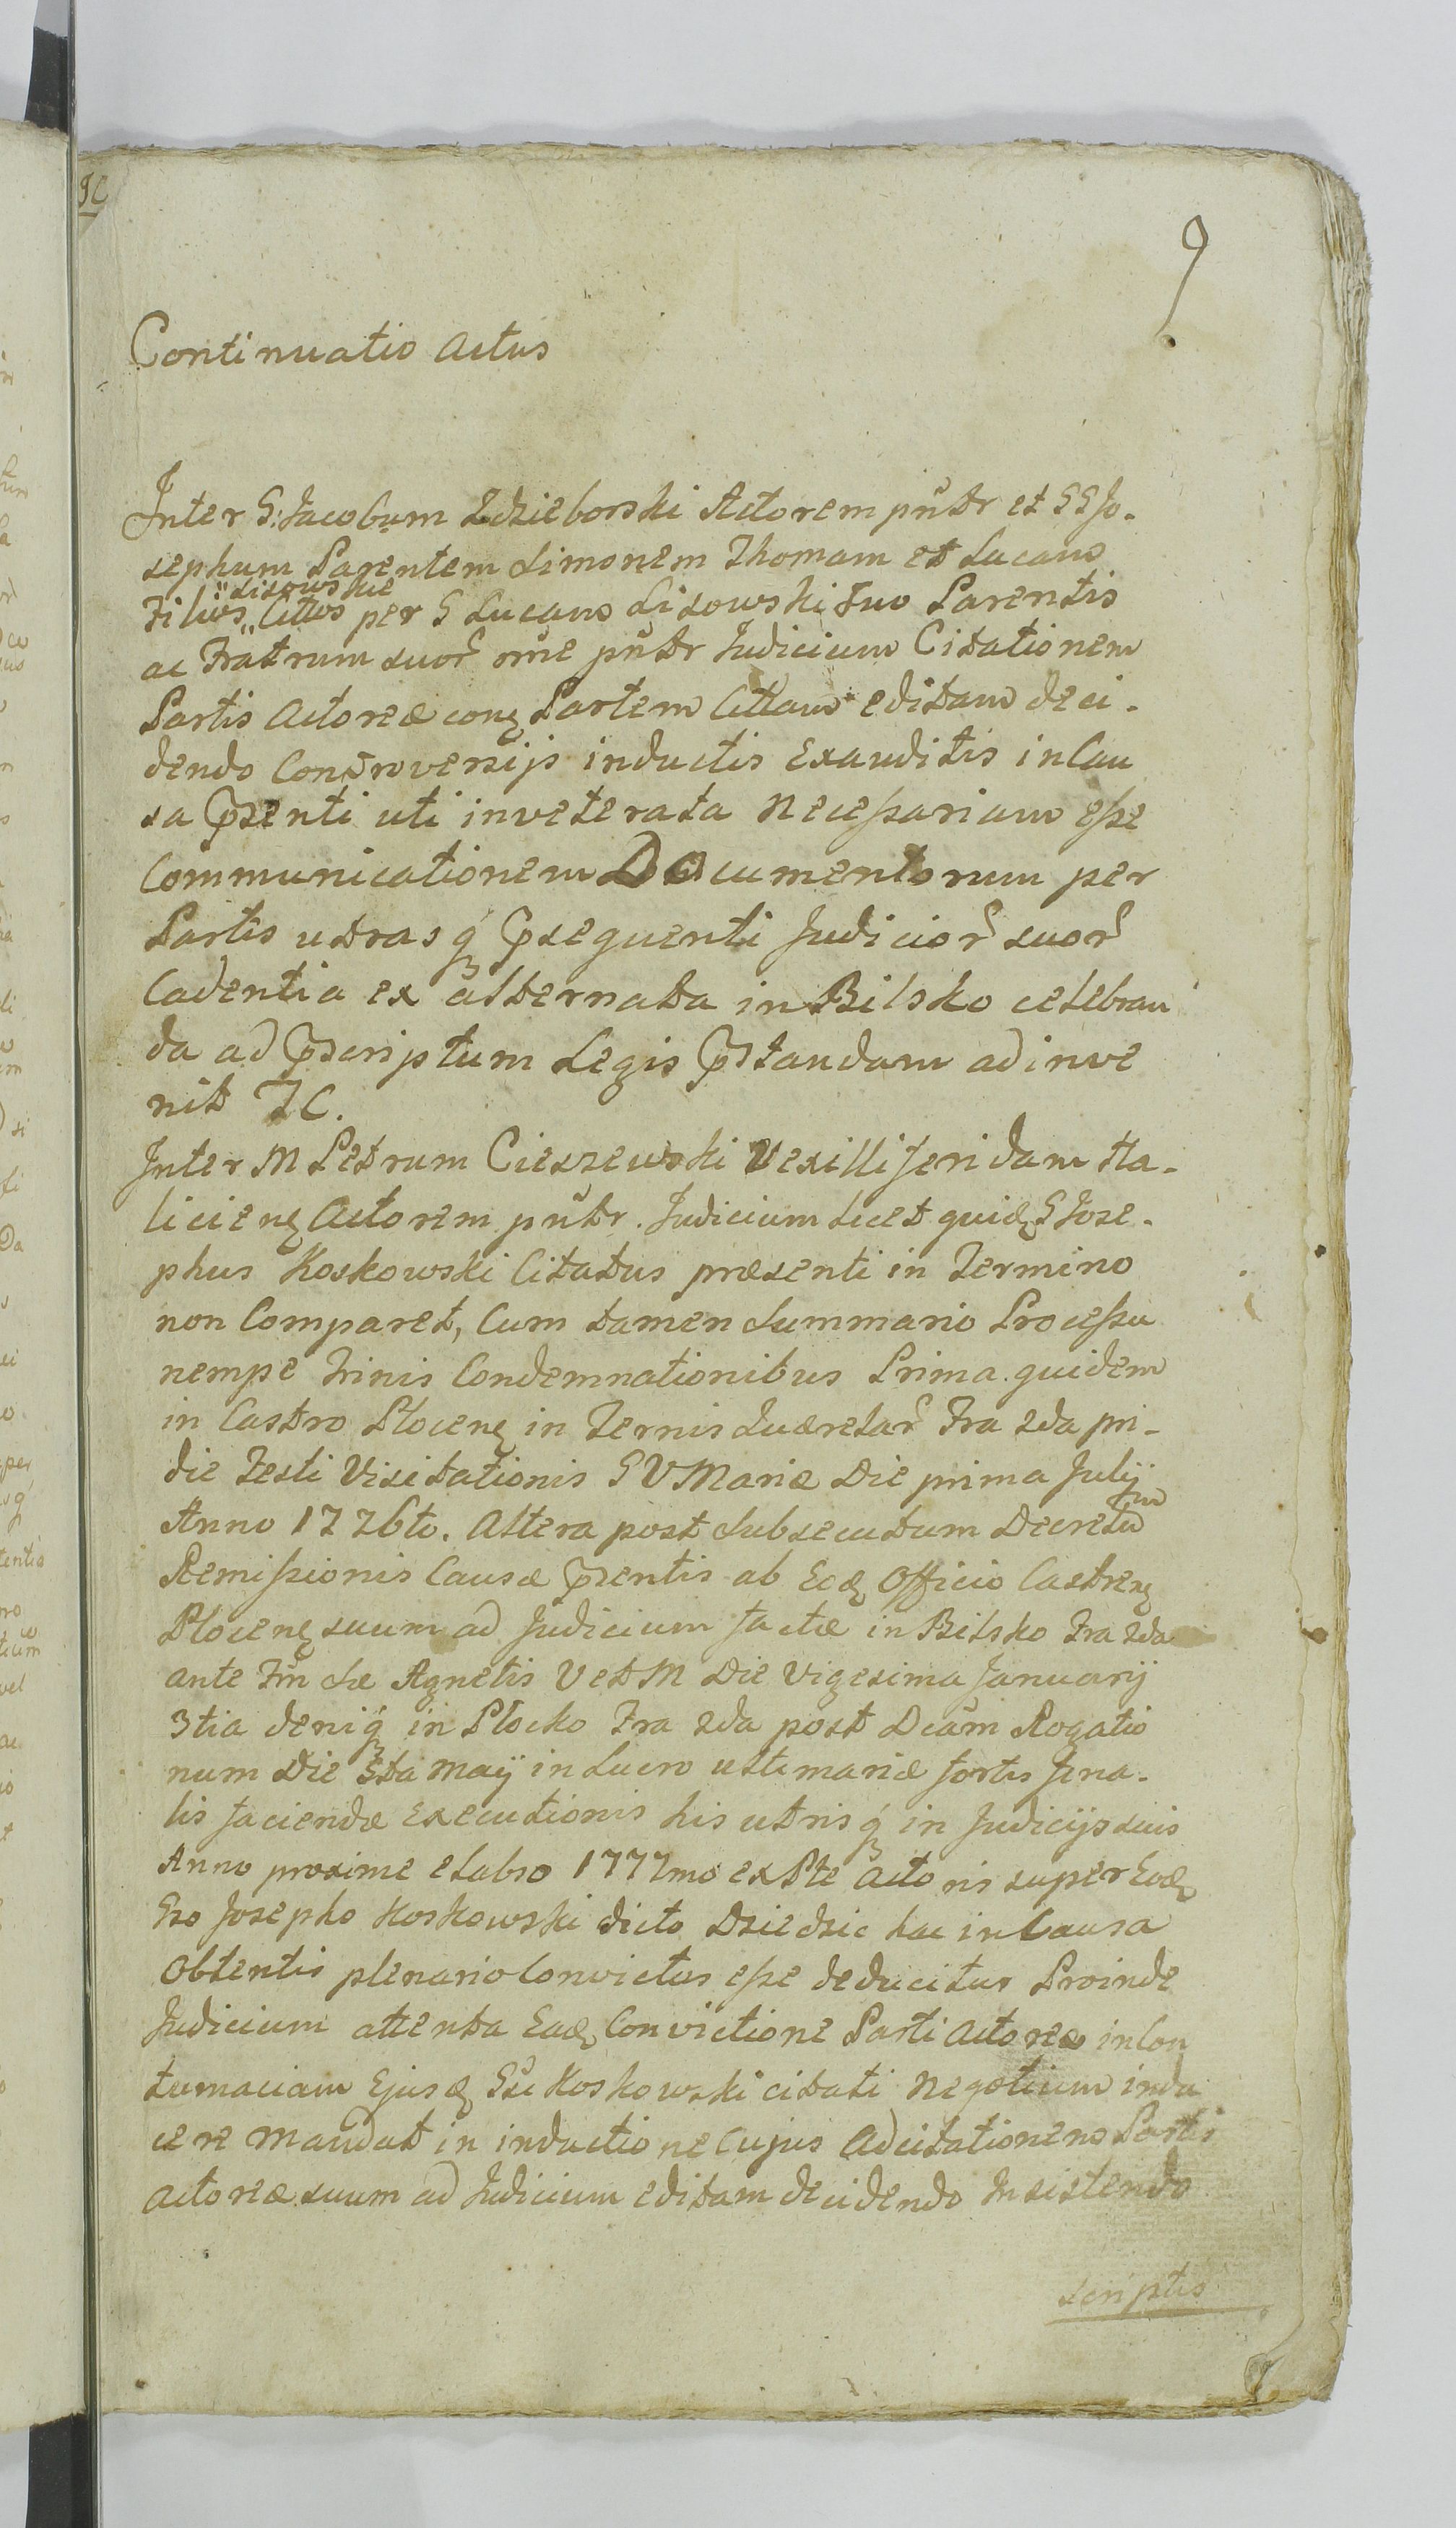 9
Continuatio Actus
Inter G: Jacobum Zdzieborski Actorem pñtr et GG Jo-
sephum Parentem Simonem Thomam et Lucam
Lisowskie
Filios Cittos per G Lucam Lisowski suo Parentis
ac Fratrum suor̃ nñe pñtr Judicium Citationem
Partis Actoreæ conq Partem Cittam editam deci-
dendo Controversijs inductis Exauditis in Cau
sa Pr̃senti uti inveterata Necessariam esse
Communicationem Documentorum per
Partis utrasq́ Pr̃sequenti Judicior̃ suor̃
Cadentia ex alternata in Bilsko celebran
da ad Pr̃scriptum Legis Pr̃standam adinve
nit IC.
Inter M Petrum Cieszewski Vexilliferidam Ha-
licienq Actorem pñtr. Judicium licet quidq G Jose-
phus Koskowski Citatus præsenti in Termino
non Comparet, Cum tamen Summario Processu
nempe Trinis Condemnationibus Prima quidem
in Castro Plocenq in Ternis Quærelar̃ Fra 2da pri-
die Festi Visitationis BV Mariæ Die prima Julij
Anno 1776to. Altera post subsecutum Decretum
Remissionis Causæ Pr̃sentis ab Eodq Officio Castrenq
Plocenq suum ad Judicium factæ in Bilsko Fra 2da
ante Fm̃ Sæ Agnetis V et M Die Vigesima Januarij
3tia deniq́ in Płocko Fra 2da post Dcam̃ Rogatio
num Die 5ta Maij in Lucro ultimariæ fortis fina-
lis faciendæ Executionis his utrisq́ in Judicijs suis
Anno proxime elabso 1777mo ex Pte Actoris super Eodq
Gso Josepho Koskowski dicto Dziedzic hac in Causa
Obtentis plenario Convictus esse deducitur Proinde
Judicium attenta Eadq Convictione Parti Actoreæ in Con
tumaciam Ejusdq Gsi Koskowski citati Negotium indu
cere Mandat in inductione Cujus Ad citationem Partis
Actoreæ suum ad Judicium editam decidendo Insistendo
scriptis